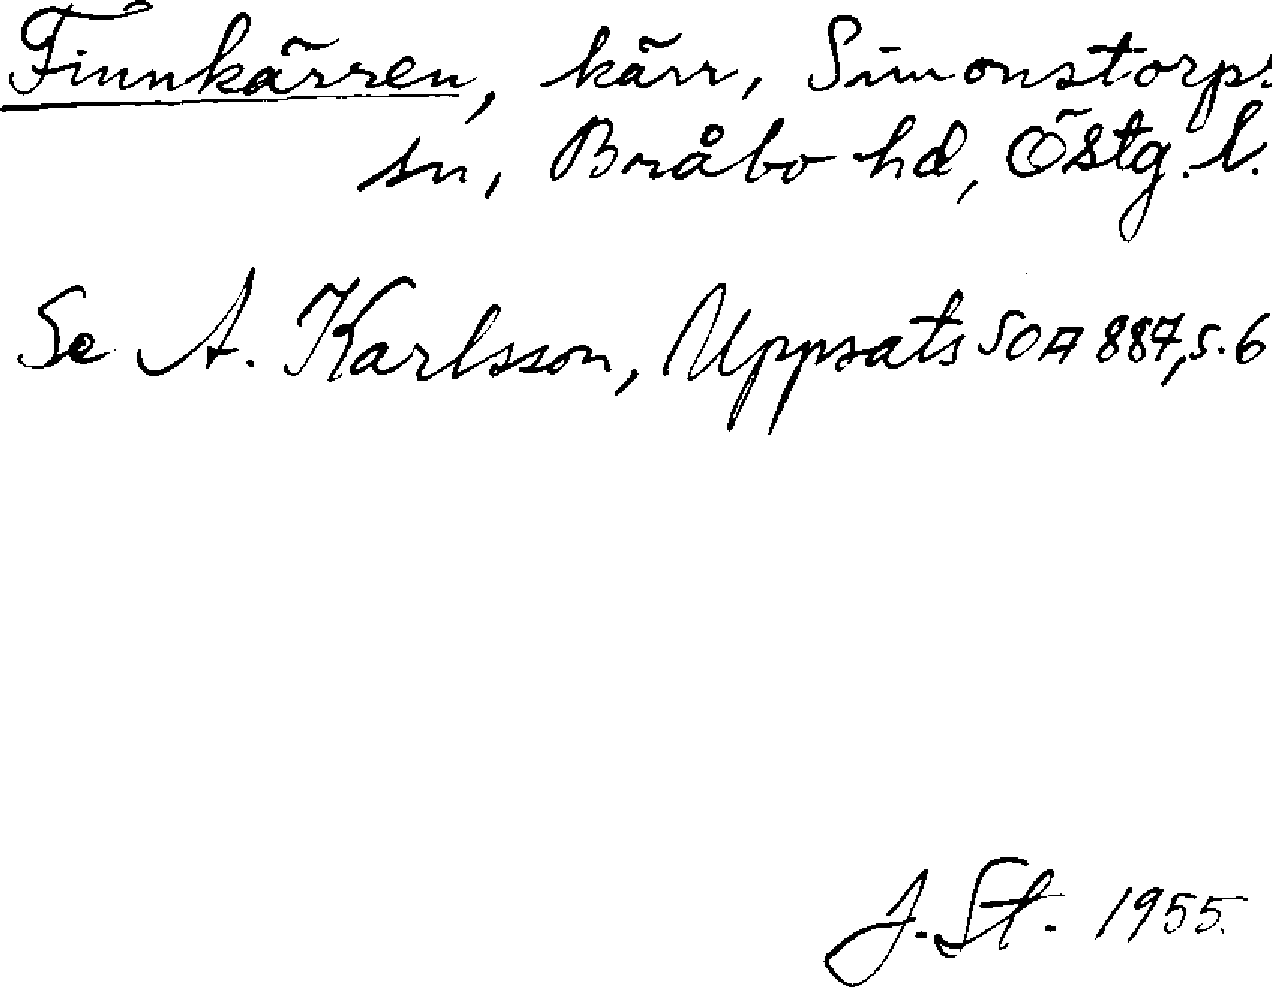 Finnkärren, kärr, Simonstorps
sn, Bråbo hd, Östg. l.
Se A. Karlsson, Uppsats SOA 887, s. 6
J. St. 1955.